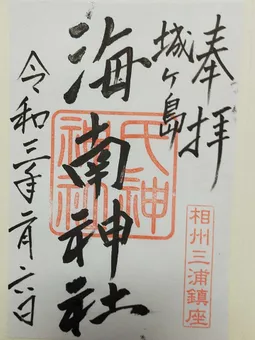 奉拝
城ヶ島
海南神社
令和三年二月六日
氏神
相州三浦鎮座